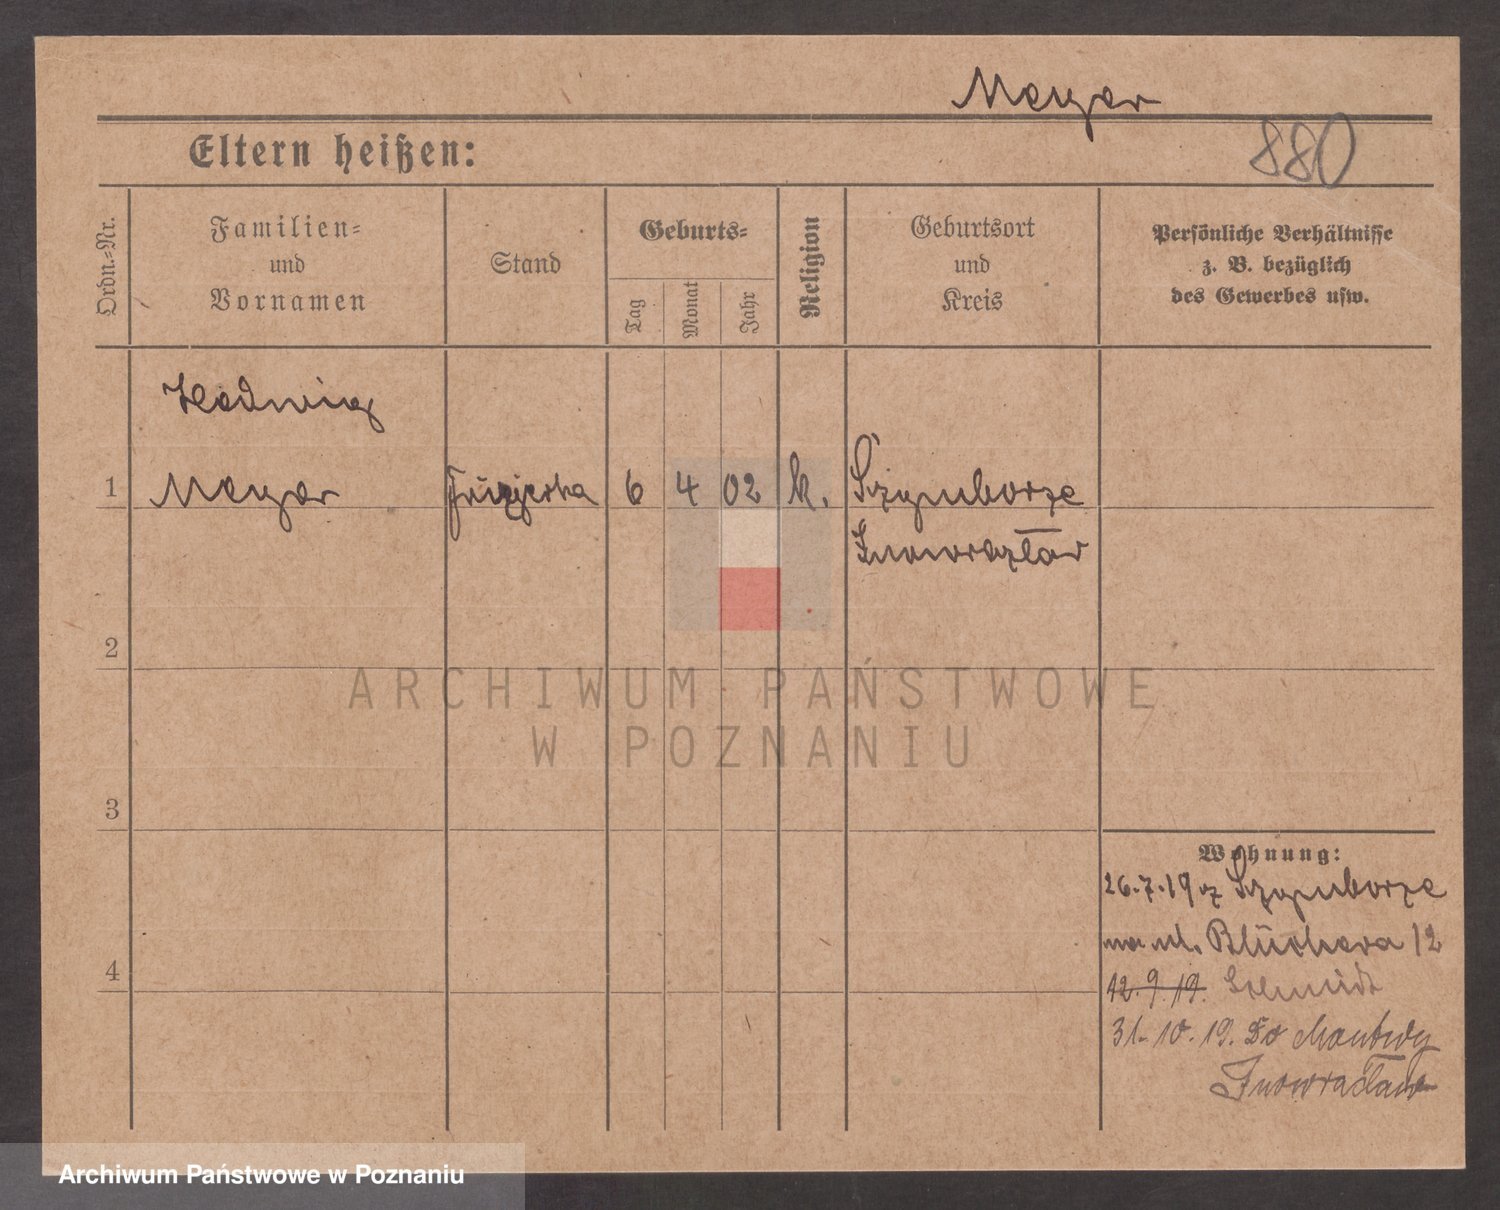 Meyer
880
Eltern heißen:
Ordn.-Nr.
Familien-
und
Vornamen
Stand
Geburts-
Tag
Monat
Jahr
Religion
Geburtsort
und
Kreis
Persönliche Verhältnisse
z. B. bezüglich
des Gewerbes usw.
Hedwig
1 Meyer Fryzjerka 6 4 02 k. Szymborze
Inowrocław
2
ARCHIWUM PAŃSTWOWE
W POZNANIU
3
Wohnung:
26.7.19 z Szymborze
na ul. Blüchera 12
4
12.9.19. Schmidt
31.10.19. Do Montwy
Inowrocław
Archiwum Państwowe w Poznaniu